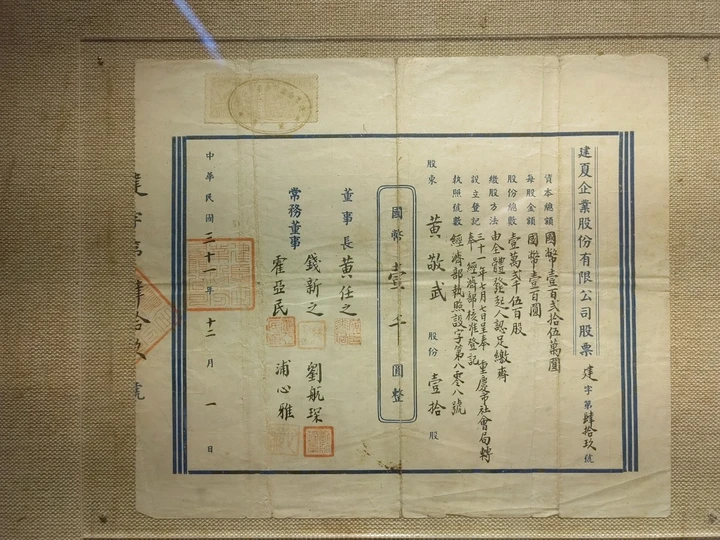 建夏企業股份有限公司股票 建字第肆拾玖號
資本總額 國幣壹百貳拾伍萬圓
每股金額 國幣壹百圓
股份總數 壹萬貳千伍百股
繳股方法 由全體發起人認足繳齊
設立登記 三十一年七月七日呈奉 重慶市社會局轉奉 經濟部核准登記
執照號數 經濟部執照設字第八零八號
股東 黃敬武 股份 壹拾 股
國幣 壹千 圓整
董事長 黃任之
常務董事 錢新之 劉航琛
霍亞民 浦心雅
中華民國三十一年十二月一日
建字第肆拾玖號